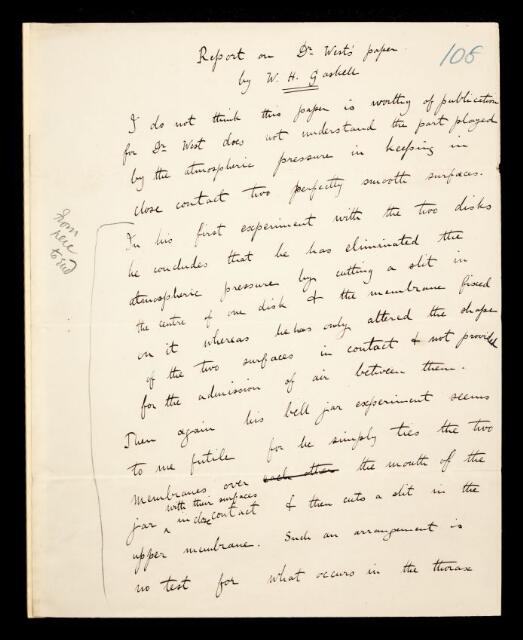 Report on Dr West's paper
by W. H. Gaskell
108
I do not think this paper is worthy of publication
for Dr West does not understand the part played
by the atmospheric pressure in keeping in
close contact two perfectly smooth surfaces.
from
here
to end
In his first experiment with the two disks
he concludes that he has eliminated the
atmospheric pressure by cutting a slit in
the centre of one disk & the membrane fixed
on it whereas he has only altered the shape
of the two surfaces in contact & not provided
for the admission of air between them.
Then again his bell jar experiment seems
to me futile for he simply ties the two
membranes over each other the mouth of the
with their surfaces
jar in close contact & then cuts a slit in the
upper membrane. Such an arrangement is
no test for what occurs in the thorax